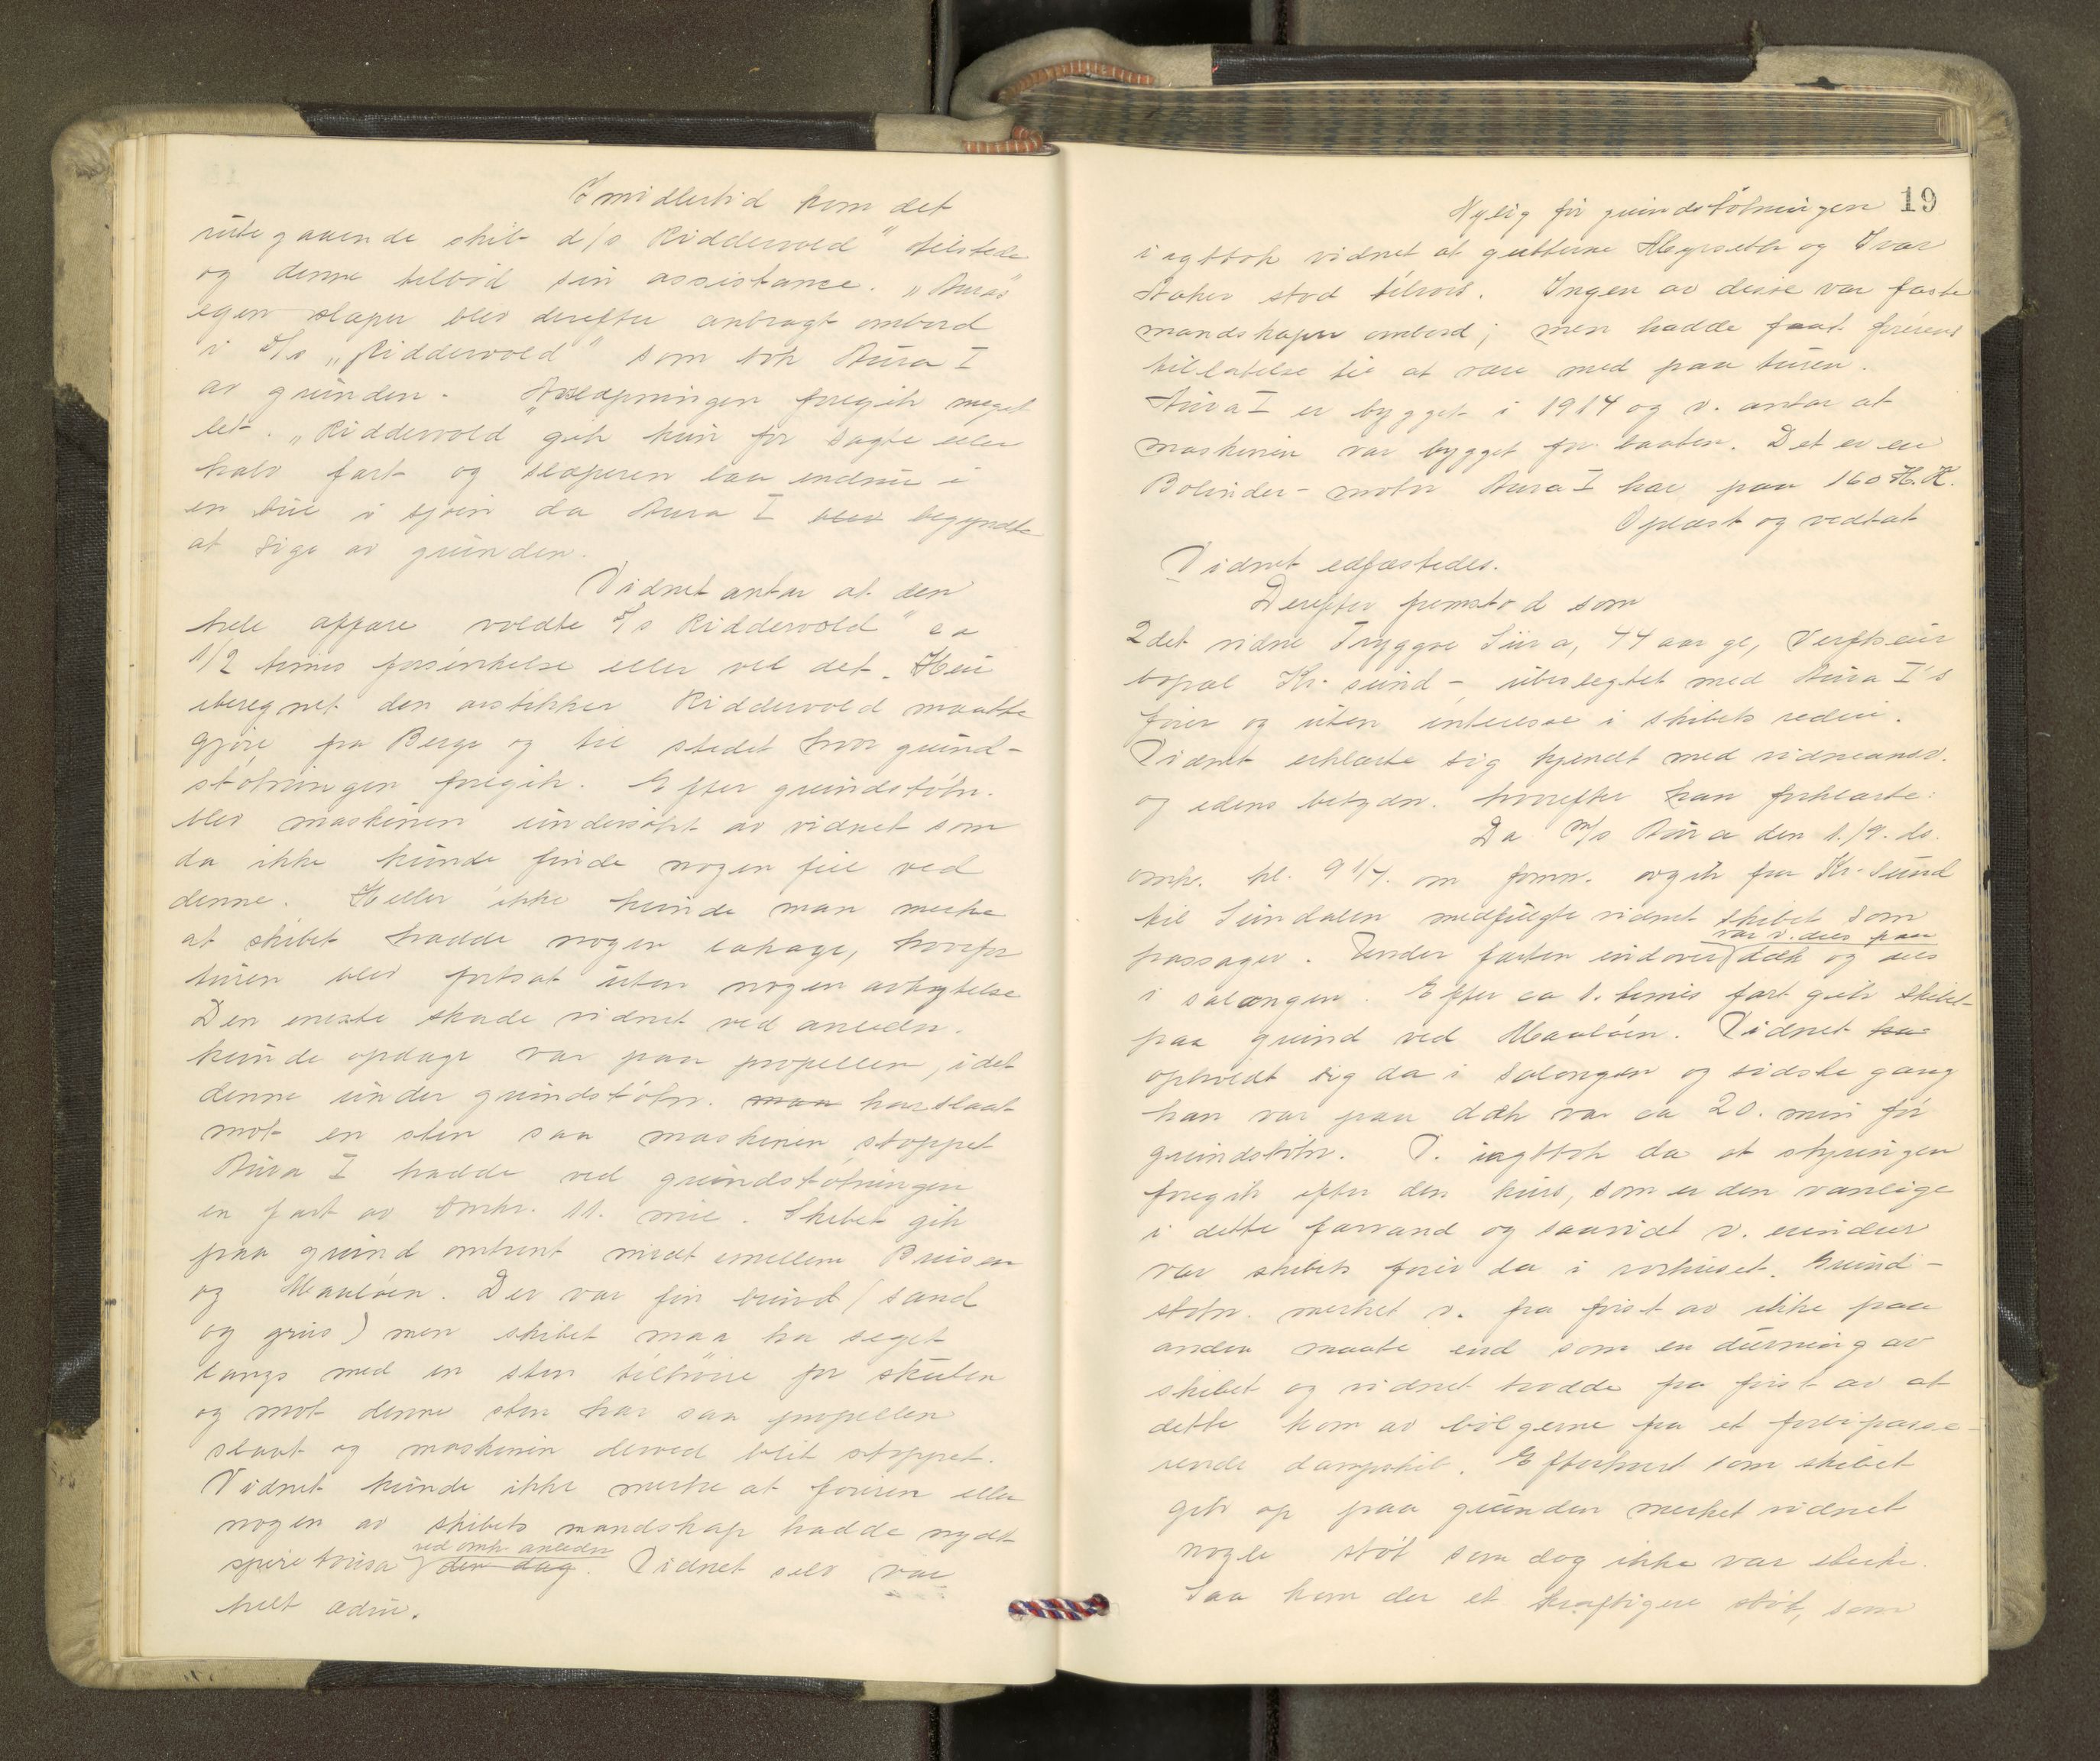 Imidlertid kom det
rutegaaende skib d/s Riddervold" tilstede
og denne tilbød sin assistance. "Aura's
egen slæper blev derefter anbragt ombord
i D/s "Riddervold" som tok Aura I
av grunden. Avslæpningen foregik meget
let. "Riddervold" gik kun for sagte eller
halv fart og slæperen laa endnu i
en bue i sjøen da Aura I blev begyndte
at sige av grunden.
Vidnet antar at den
hele affære voldte D/s Riddervold" ca
1/2 times forsinkelse eller vel det. Heri
iberegnet den avstikker Riddervold maatte
gjøre fra Berge og til stedet hvor grund-
støtningen foregik. Efter grundstøtn.
blev maskinen undersøkt av vidnet som
da ikke kunde finde nogen feil ved
denne. Heller ikke kunde man merke
at skibet hadde nogen lekage, hvorfor
turen blev fortsat uten nogen avbrytelse
Den eneste skade vidnet ved anledn.
kunde opdage var paa propellen, idet
denne under grundstøtn. maa har slaat
mot en sten saa maskinen stoppet
Aura I hadde ved grundstøtningen
en fart av omkr. 11. mil. Skibet gik
paa grund omtrent midt imellem Bruisen
og Maaløen. Der var fin bund (sand
og grus) men skibet maa ha seget
langs med en sten tilhøire for skuten
og mot denne sten har saa propellen
slaat og maskinen derved blit stoppet.
Vidnet kunde ikke merke at føreren eller
nogen av skibets mandskap hadde nydt
ved omh. anledn
spirituosa den dag. Vidnet selv var
helt ædru.
19
Nylig før grundstøtningen
iagttok vidnet at gutterne Myrseth og Ivar
Staker stod tilrors. Ingen av disse var faste
mandskaper ombord; men hadde faat førerens
tillatelse til at være med paa turen.
Aura I er bygget i 1914 og v. antar at
maskinen var bygget for baaten. Det er en
Bolinder-motor Aura I har paa 160 H.K.
Oplæst og vedtat
Vidnet edfæstedes.
Derefter fremstod som
2det vidne Tryggve Süra, 44 aar gl, Verftseier
bopæl Kr.sund - ubeslegtet med Aura I's
fører og uten interesse i skibets rederi.
Vidnet erklærte sig kjendt med vidneansv.
og edens betydn. hvorefter han forklarte:
Da M/s Aura den 1./9. ds.
omkr. kl. 9 1/4. om formn. avgik fra Kr.sund
til Sundalen medfulgte vidnet skibet som
var v. dels paa
passager. Under farten indover dæk og dels
i salongen. Efter ca 1. times fart gik skibet
paa grund ved Maaløen. Vidnet ha
opholdt sig da i salongen og sidste gang
han var paa dæk var ca 20. min før
grundstøtn. V. iagttok da at styringen
foregik efter den kurs, som er den vanlige
i dette farvand og saavidt v. erindrer
var skibets fører da i rorhuset. Grund-
støtn. merket v. fra først av ikke paa
anden maate end som en durning av
skibet og vidnet trodde fra først av at
dette kom av bølgerne fra et forbipasse-
rende dampskib. Efterhvert som skibet
gik op paa grunden merket vidnet
nogle støt som dog ikke var sterke.
Saa kom der et kraftigere støt, som